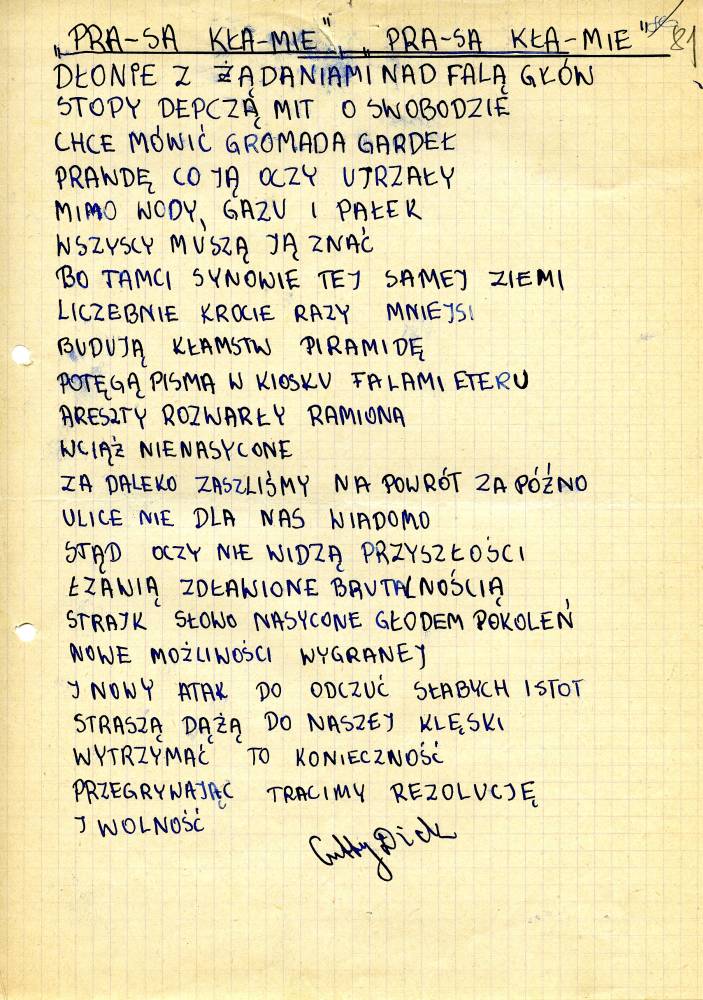 „PRA-SA KŁA-MIE" „PRA-SA KŁA-MIE" 81
DŁONIE Z ŻĄDANIAMI NAD FALĄ GŁÓW
STOPY DEPCZĄ MIT O SWOBODZIE
CHCE MÓWIĆ GROMADA GARDEŁ
PRAWDĘ CO JĄ OCZY UJRZAŁY
MIMO WODY, GAZU I PAŁEK
WSZYSCY MUSZĄ JĄ ZNAĆ
BO TAMCI SYNOWIE TEJ SAMEJ ZIEMI
LICZEBNIE KROCIE RAZY MNIEJSI
BUDUJĄ KŁAMSTW PIRAMIDĘ
POTĘGĄ PISMA W KIOSKU FALAMI ETERU
ARESZTY ROZWARŁY RAMIONA
WCIĄŻ NIENASYCONE
ZA DALEKO ZASZLIŚMY NA POWRÓT ZA PÓŹNO
ULICE NIE DLA NAS WIADOMO
STĄD OCZY NIE WIDZĄ PRZYSZŁOŚCI
ŁZAWIĄ ZDŁAWIONE BRUTALNOŚCIĄ
STRAJK SŁOWO NASYCONE GŁODEM POKOLEŃ
NOWE MOŻLIWOŚCI WYGRANEJ
I NOWY ATAK DO ODCZUĆ SŁABYCH ISTOT
STRASZĄ DĄŻĄ DO NASZEJ KLĘSKI
WYTRZYMAĆ TO KONIECZNOŚĆ
PRZEGRYWAJĄC TRACIMY REZOLUCJĘ
I WOLNOŚĆ
Cutty Dick